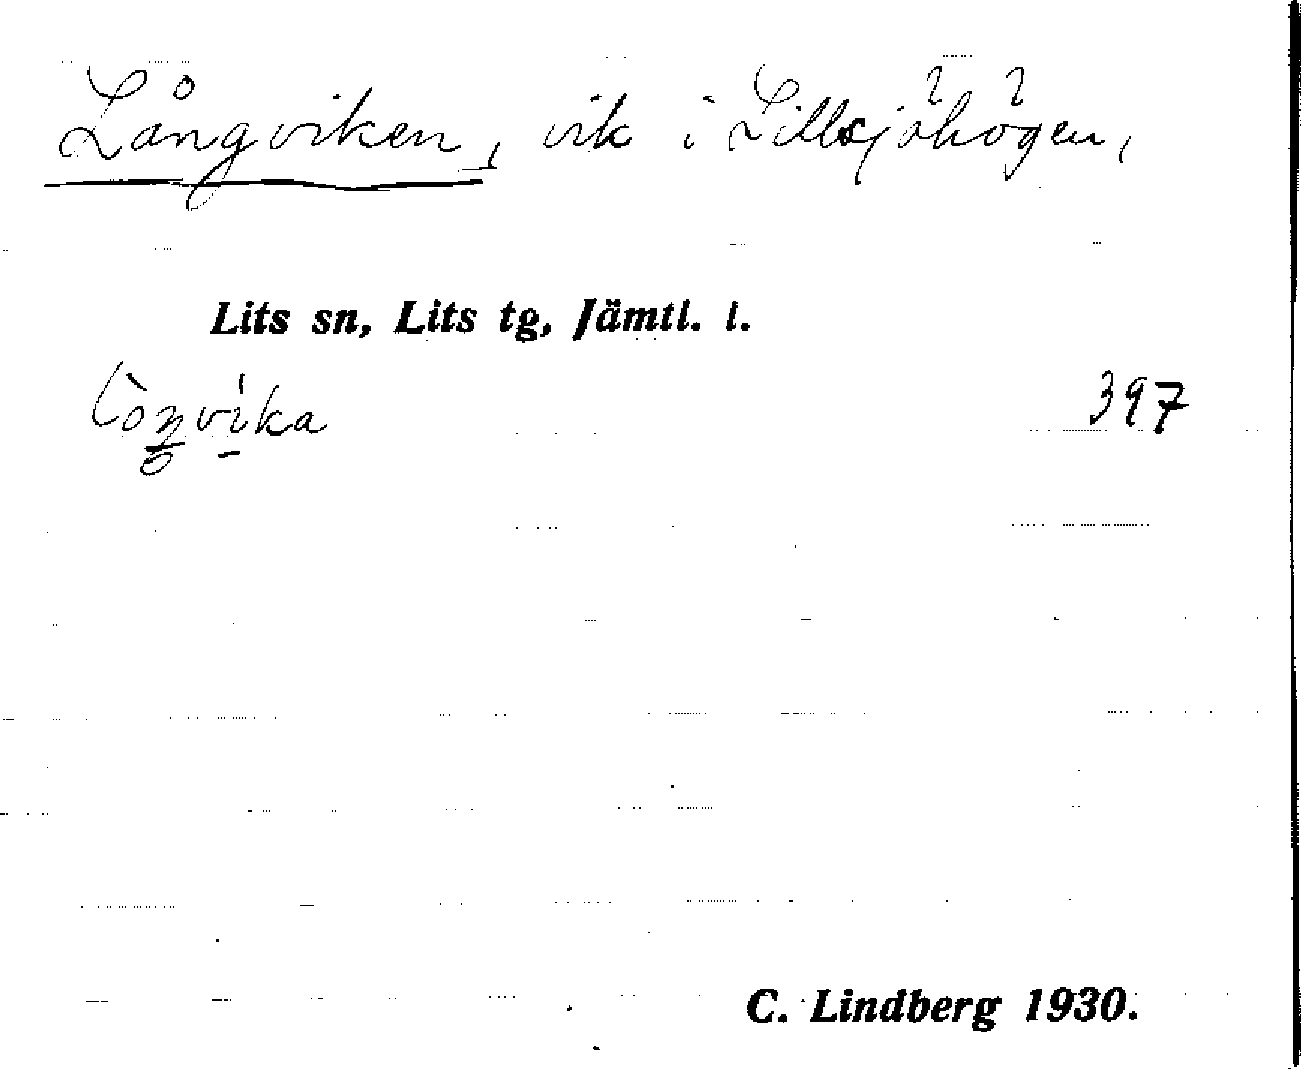 Långviken, vik i Lillsjöhögen,
Lits sn, Lits tg, Jämtl. l.
397
C. Lindberg 1930.